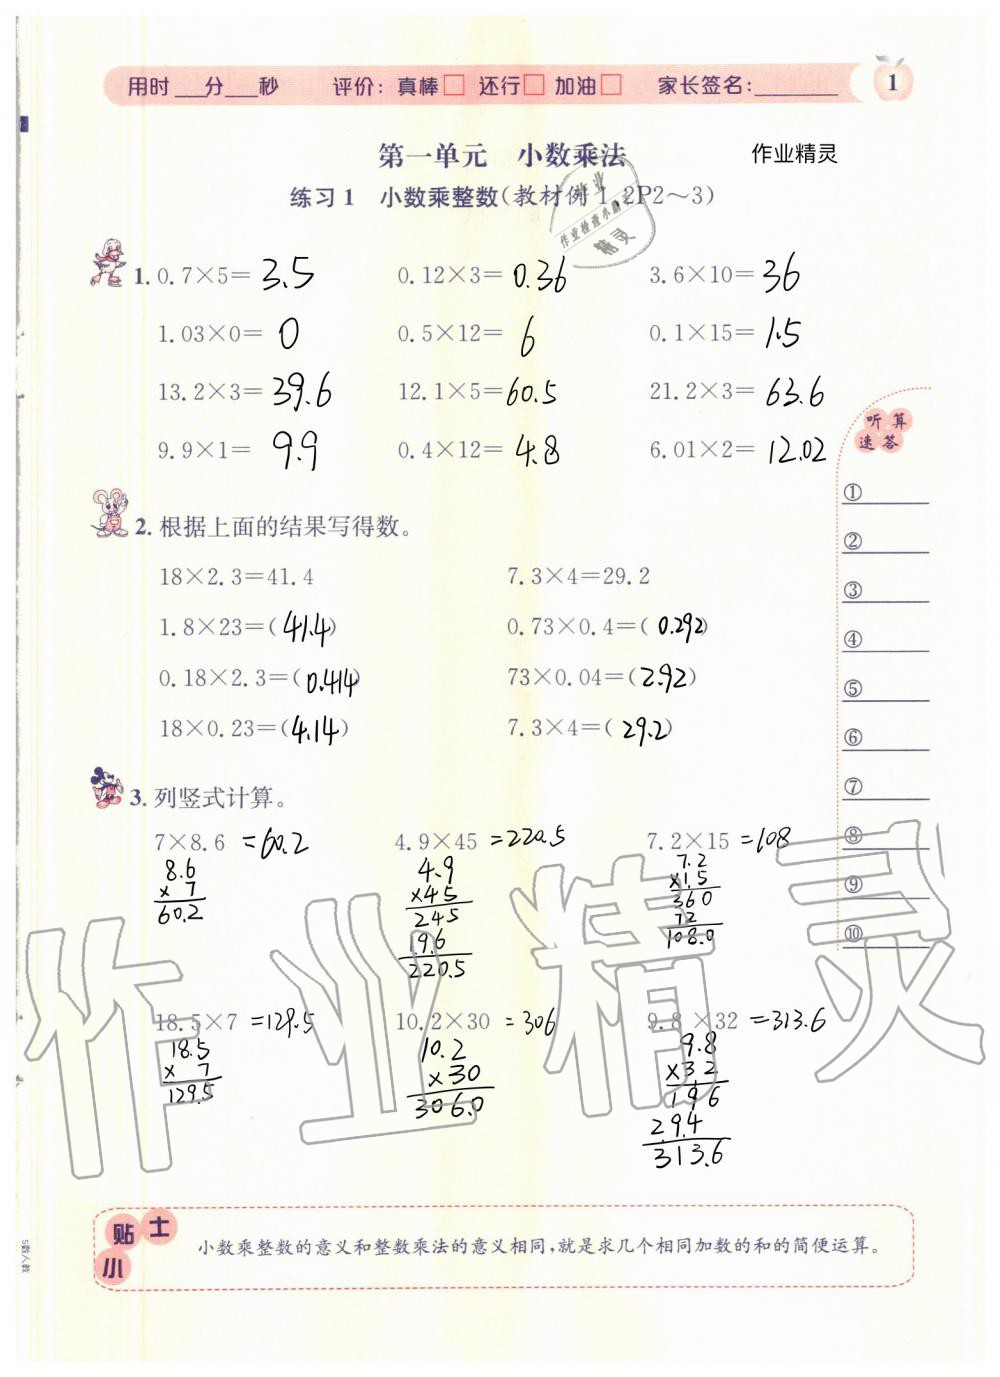 用时___分___秒 评价：真棒□ 还行□ 加油□ 家长签名：________ 1
第一单元 小数乘法 作业精灵
练习1 小数乘整数(教材例1、2P2～3)
1. 0.7×5= 3.5 0.12×3= 0.36 3.6×10= 36
1.03×0= 0 0.5×12= 6 0.1×15= 1.5
13.2×3= 39.6 12.1×5= 60.5 21.2×3= 63.6
9.9×1= 9.9 0.4×12= 4.8 6.01×2= 12.02
听算
速答
①
②
③
④
⑤
⑥
⑦
⑧
⑨
⑩
2. 根据上面的结果写得数。
18×2.3=41.4 7.3×4=29.2
1.8×23=(41.4) 0.73×0.4=(0.292)
0.18×2.3=(0.414) 73×0.04=(2.92)
18×0.23=(4.14) 7.3×4=(29.2)
3. 列竖式计算。
7×8.6 =60.2 4.9×45 =220.5 7.2×15 =108
8.6 4.9 7.2
×7 ×45 ×1.5
60.2 245 360
19.6 72
220.5 108.0
18.5×7 =129.5 10.2×30 =306 9.8×32 =313.6
18.5 10.2 9.8
×7 ×30 ×32
129.5 306.0 196
29.4
313.6
作业精灵
小贴士
小数乘整数的意义和整数乘法的意义相同,就是求几个相同加数的和的简便运算。
5数人教